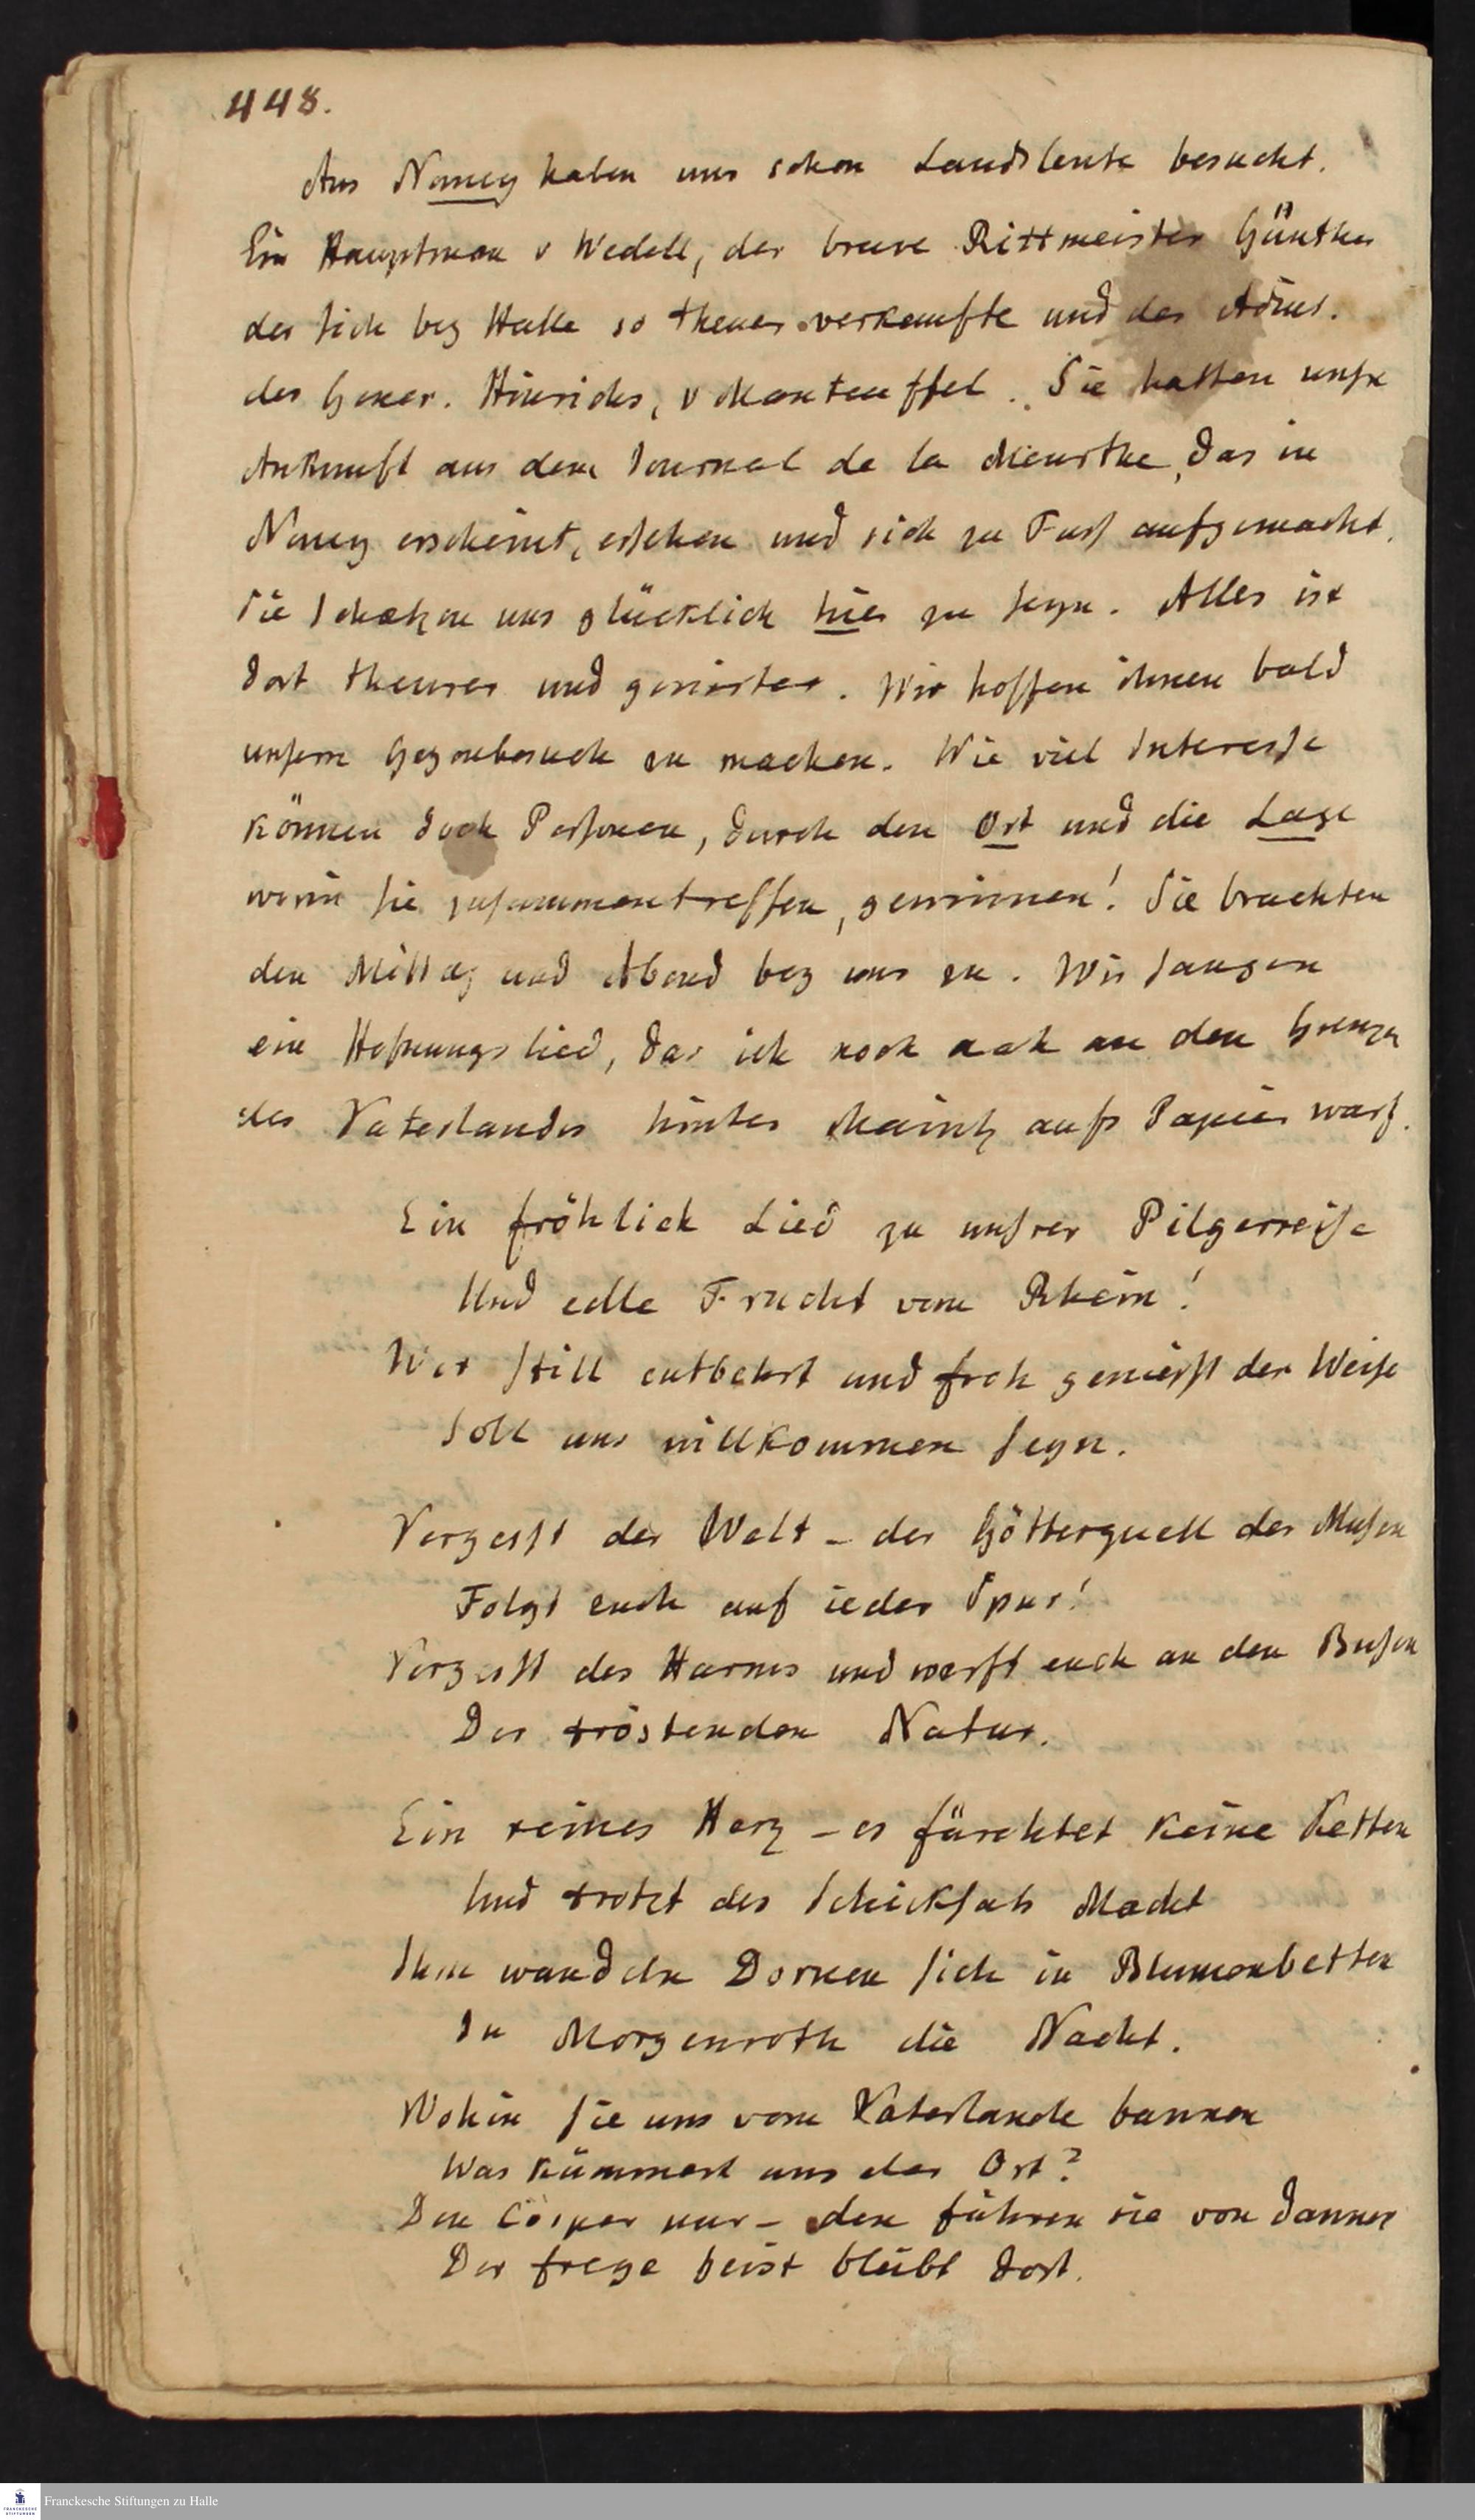 448.
Aus Nancy haben uns schon Landsleute besucht.
Ein Hauptman v Wedell, der brave Rittmeister Günther
der sich bey Halle so theuer verkaufte und der Adiut.
des Gener. Hinrichs, v Manteuffel. Sie hatten unsre
Ankunft aus dem Journal de la Meurthe, das in
Nancy erscheint, ersehen und sich zu Fuß aufgemacht.
Sie schäzen uns glücklich hier zu seyn. Alles ist
dort theurer und genirter. Wir hoffen ihnen bald
unsern Gegenbesuch zu machen. Wie viel Interesse
können doch Personen, durch den Ort und die Lage
worin sie zusammentreffen, gewinnen! Sie brachten
den Mittag und Abend bey uns zu. Wir sangen
ein Hofnungslied, das ich noch nah an den Grenzen
des Vaterlandes hinter Maintz aufs Papier warf.
Ein fröhlich Lied zu unsrer Pilgerreise
Und edle Frucht vom Rhein!
Wer still entbehrt und froh genießt der Weise
Soll uns willkommen seyn.
Vergeßt der Welt - der Götterquell der Musen
Folgt euch auf ieder Spur!
Vergeßt des Harms und werft euch an den Busen
Der tröstenden Natur.
Ein reines Herz - es fürchtet keine Ketten
Und trotzt des Schicksals Macht
Ihm wandeln Dornen sich in Blumenbetten
In Morgenroth die Nacht.
Wohin sie uns vom Vaterlande bannen
Was kümmert uns der Ort?
Den Cörper nur - den führen sie von dannen
Der freye Geist bleibt dort.
Franckesche Stiftungen zu Halle